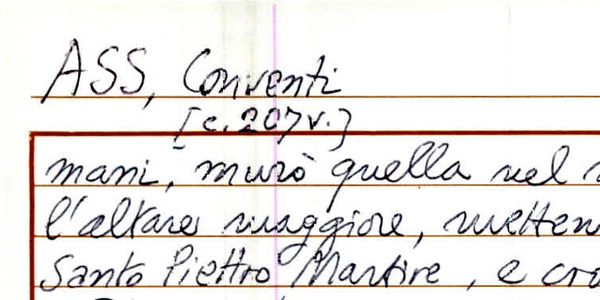 ASS, Conventi
[c. 207v.]
mani, murò quella nel
l'altare maggiore, metten
Santo Piettro Martire, e cro